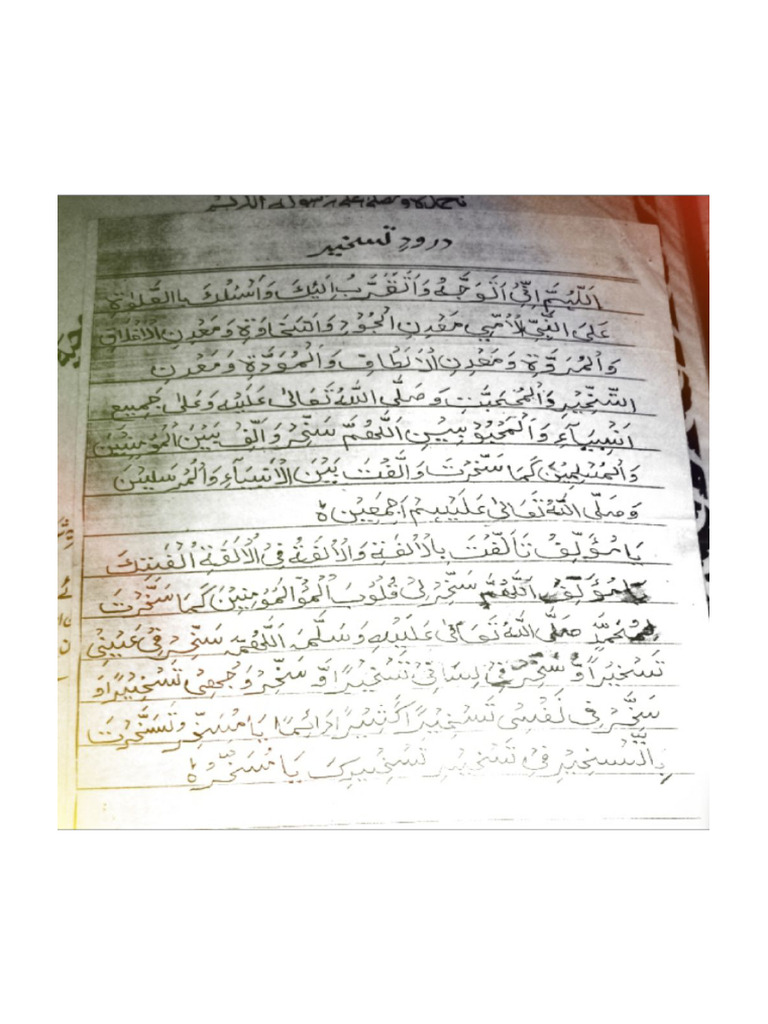 درود تسخیر
اَللّٰهُمَّ اِنِّیْ اَتَوَجَّهُ وَاَتَقَرَّبُ اِلَیْكَ وَاَسْئَلُكَ بِالصَّلٰوةِ
عَلَی النَّبِیِّ الْاُمِّیِّ مَعْدِنِ الْجُوْدِ وَالسَّخَاوَةِ وَمَعْدِنِ الْاَخْلَاقِ
وَالْمُرَوَّةِ وَمَعْدِنِ الْاَلْطَافِ وَالْمُوَدَّةِ وَمَعْدِنِ
وَصَلَّی اللّٰهُ تَعَالٰی عَلَیْهِ وَعَلٰی جَمِیْعِ
اَنْبِیَآءِ اَللّٰهُمَّ سَخِّرْ وَاَلِّفْ بَیْنَ الْمُؤْمِنِیْنَ
وَالْمُسْلِمِیْنَ كَمَا سَخَّرْتَ وَاَلَّفْتَ بَیْنَ الْاَنْبِیَآءِ وَالْمُرْسَلِیْنَ
وَصَلَّی اللّٰهُ تَعَالٰی عَلَیْهِمْ اَجْمَعِیْنَ ؕ
یَا مُؤَلِّفُ تَاَلَّفْتَ بِالْاُلْفَةِ وَالْاُلْفَةُ فِی الْاُلْفَةِ اُلْفَتِكَ
یَا مُؤَلِّفُ اَللّٰهُمَّ سَخِّرْ لِیْ قُلُوْبَ الْمُؤْمِنِیْنَ كَمَا سَخَّرْتَ
صَلَّی اللّٰهُ تَعَالٰی عَلَیْهِ وَسَلَّمَ اَللّٰهُمَّ سَخِّرْ فِیْ عَیْنِیْ
تَسْخِیْرًا وَّ سَخِّرْ فِیْ لِسَانِیْ تَسْخِیْرًا وَّ سَخِّرْ وَجْهِیْ تَسْخِیْرًا وَ
سَخِّرْ فِیْ نَفْسِیْ تَسْخِیْرًا كَثِیْرًا دَائِمًا یَا مُسَخِّرُ تَسَخَّرْتَ
بِالتَّسْخِیْرِ فِیْ تَسْخِیْرِ تَسْخِیْرِكَ یَا مُسَخِّرُ ؕ